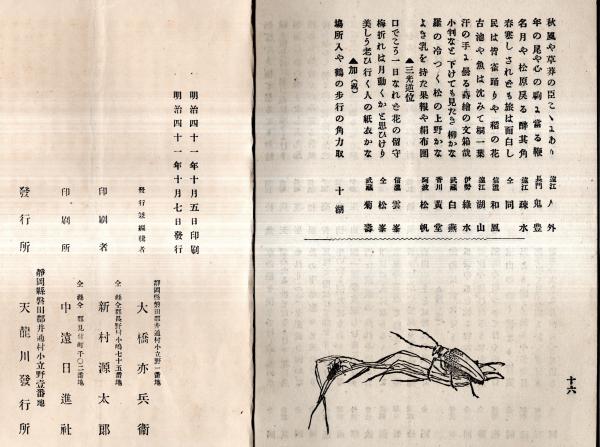 秋風や草莽の臣こゝにあり 遠江 人外
年の尾や心の駒に當る鞭 長門 鬼豊
名月や松原戻る醉其角 遠江 疎水
春寒しされども旅は面白し 仝 同
民は皆雀踊りや稲の花 信濃 和風
古池や魚は沈みて桐一葉 遠江 湖山
汗の手に曇る蒔繪の文箱哉 伊勢 綠水
小判など下げても見たき柳かな 武蔵 白燕
羅の冷つく松の上野かな 香川 黃堂
よき乳を持た果報や絹布團 阿波 松帆
▲三光逆位
口でこう一日なれや花の留守 信濃 雲峯
梅折れは月動くかと思ひけり 仝 松峯
美しう老ひ行く人の紙衣かな 武蔵 菊壽
▲加(祝)
場所入や鶴の歩行の角力取 十湖
十六
明治四十一年十月五日印刷
明治四十一年十月七日發行
靜岡縣磐田郡井通村小立野一番地
發行兼編輯者 大橋亦兵衞
仝縣仝郡長野村小嶋七十五番地
印刷者 新村源太郎
仝縣仝郡見付町千〇二番地
印刷所 中遠日進社
靜岡縣磐田郡井通村小立野壹番地
發行所 天龍川發行所